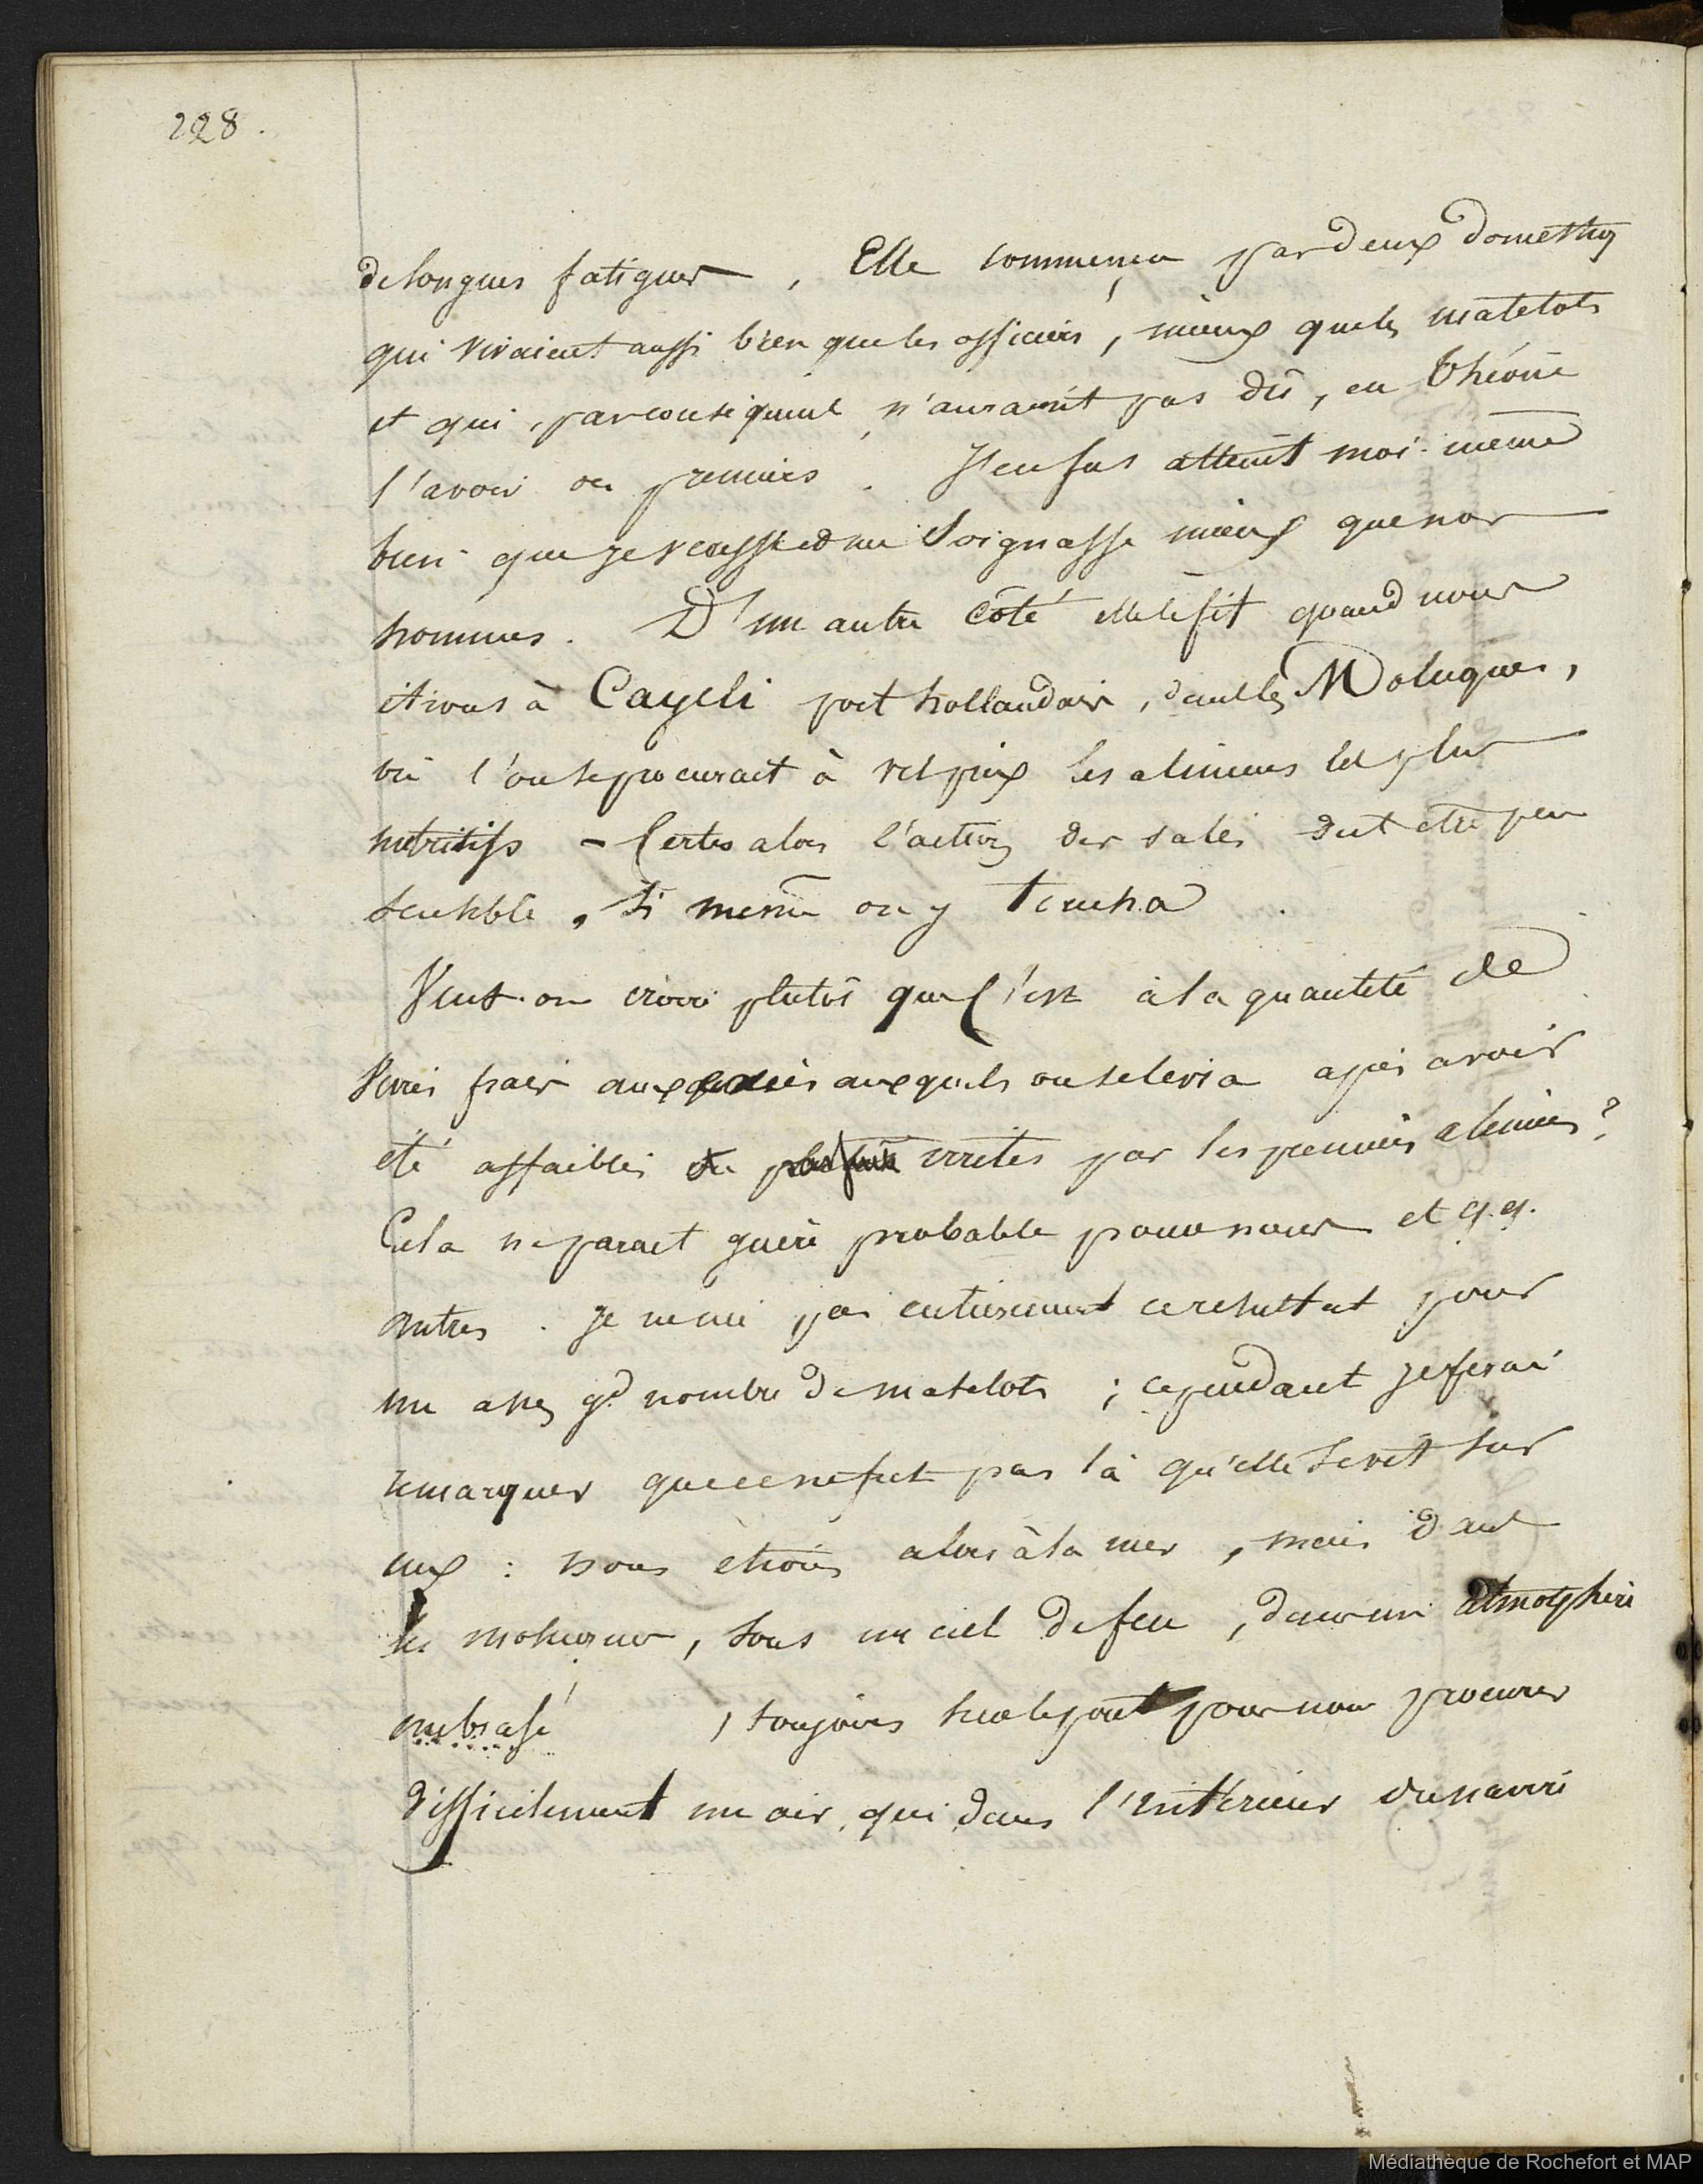 228.
de longues fatigues, Elle commença par deux domestiq
qui vivaient aussi bien que les officiers, mieux que les matelots
et qui, par conséquent, n'auraient pas dû, en théorie
l'avoir les premiers. J'en fus atteint moi-même
bien que je vécusse et me soignasse mieux que nos
hommes. D'un autre côté elle le fit quand nous
étions à Cayeli port hollandais, dans les Moluques,
où l'on se procurait à vil prix les alimens les plus
nutritifs - Certes alors l'action des salés dut être peu
sensible, si même on y toucha.
Veut-on croire plutôt que c'est à la quantité de
vivres frais auxquels on se livra après avoir
été affaiblis et irrités par les premiers alimens?
Cela ne parait guère probable pour nous et q.q.
autres. Je ne nie pas entièrement ce résultat pour
un assez gd nombre de matelots; cependant je ferai
remarquer que ce ne fut pas là qu'elle sévit sur
eux: nous étions alors à la mer, mais dans
les moluques, sous un ciel de feu, dans une atmosphère
embrasé, toujours sur le pont pour nous procurer
difficilement un air, qui dans l'intérieur du navire
Médiathèque de Rochefort et MAP